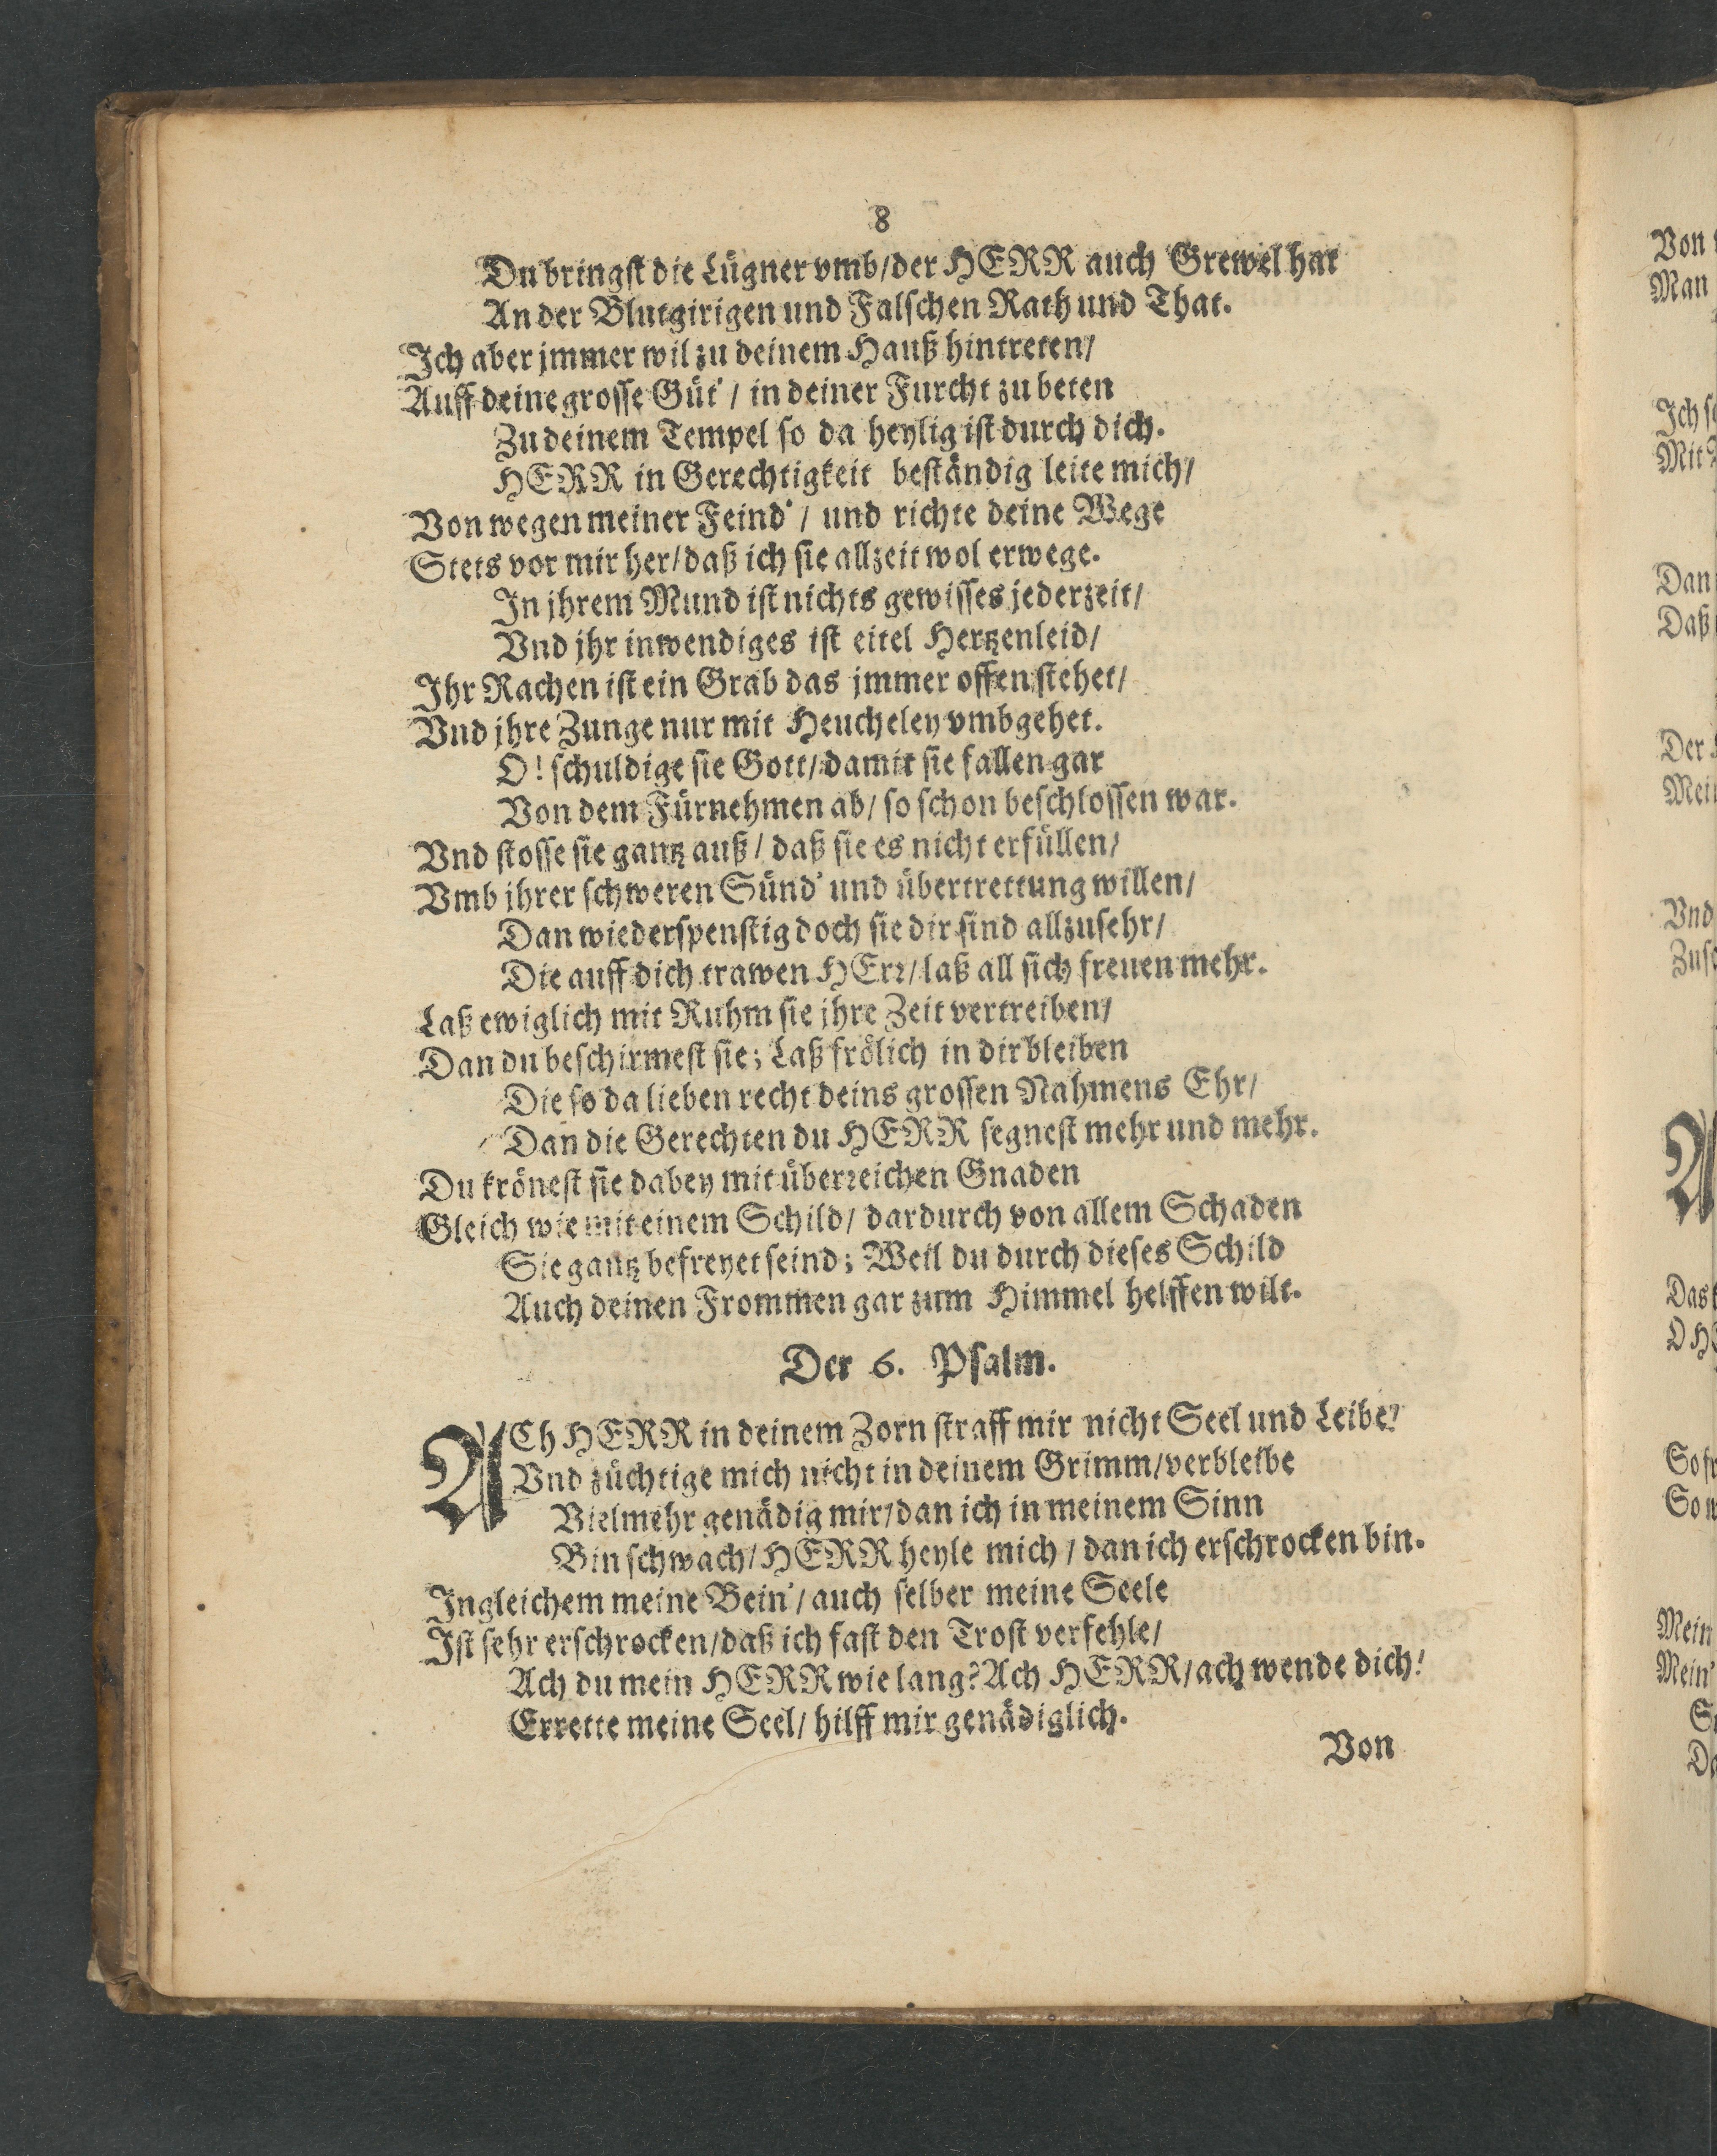 8
Du bringst die Lügner vmb/der HERR auch Grewel hat
An der Blutgirigen und Falschen Rath und That.
Ich aber jmmer wil zu deinem Hauß hintreten/
Auff deine grosse Güt'/ in deiner Furcht zu beten
Zu deinem Tempel so da heylig ist durch dich.
HERR in Gerechtigkeit beständig leite mich/
Von wegen meiner Feind'/ und richte deine Wege
Stets vor mir her/daß ich sie allzeit wol erwege.
In jhrem Mund ist nichts gewisses jederzeit/
Vnd jhr inwendiges ist eitel Hertzenleid/
Ihr Rachen ist ein Grab das jmmer offen stehet/
Vnd jhre Zunge nur mit Heucheley vmbgehet.
O! schuldige sie Gott/damit sie fallen gar
Von dem Fürnehmen ab/ so schon beschlossen war.
Vnd stosse sie gantz auß/ daß sie es nicht erfüllen/
Vmb jhrer schweren Sünd' und übertrettung willen/
Dan wiederspenstig doch sie dir sind allzusehr/
Die auff dich trawen HErr/laß all sich freuen mehr.
Laß ewiglich mit Ruhm sie jhre Zeit vertreiben/
Dan du beschirmest sie; Laß frölich in dir bleiben
Die so da lieben recht deins grossen Nahmens Ehr/
Dan die Gerechten du HERR segnest mehr und mehr.
Du krönest sie dabey mit überreichen Gnaden
Gleich wie mit einem Schild/ dardurch von allem Schaden
Sie gantz befreyet seind; Weil du durch dieses Schild
Auch deinen Frommen gar zum Himmel helffen wilt.
Der 6. Psalm.
ACh HERR in deinem Zorn straff mir nicht Seel und Leibe/
Vnd züchtige mich nicht in deinem Grimm/verbleibe
Vielmehr genädig mir/dan ich in meinem Sinn
Bin schwach/HERR heyle mich/ dan ich erschrocken bin.
Ingleichem meine Bein'/ auch selber meine Seele
Ist sehr erschrocken/daß ich fast den Trost verfehle/
Ach du mein HERR wie lang? Ach HERR/ach wende dich!
Errette meine Seel/ hilff mir genädiglich.
Von
Von
Man
Ich
Mit
Dan
Daß
Der
Vnd
A
Das
Mein
Mein'